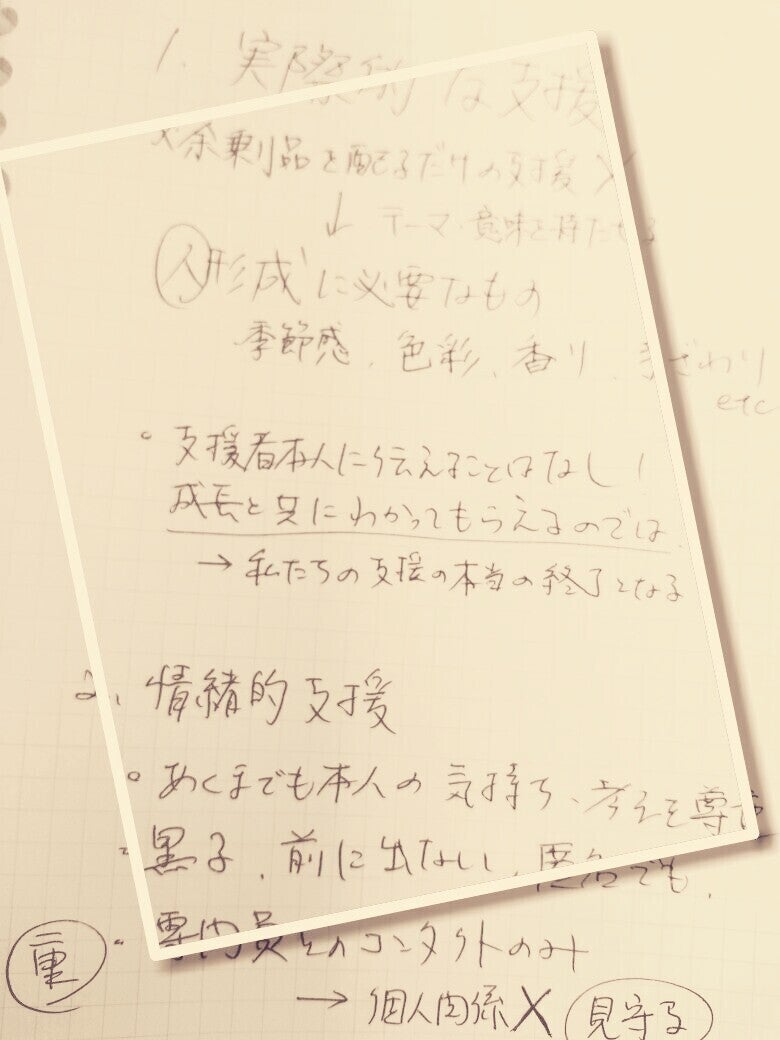 1. 実際的な支援
余剰品を配るだけの支援 ×
↓ テーマ・意味を持たせる
人形成に必要なもの
季節感、色彩、香り、手ざわり
etc
・支援者本人に伝えることはなし
成長と共にわかってもらえるのでは
→ 私たちの支援の本当の終了となる
2. 情緒的支援
・あくまでも本人の気持ち、考えを尊重
・黒子、前に出ない、匿名でも、
重 ・専門員とのコンタクトのみ
→ 個人関係× 見守る